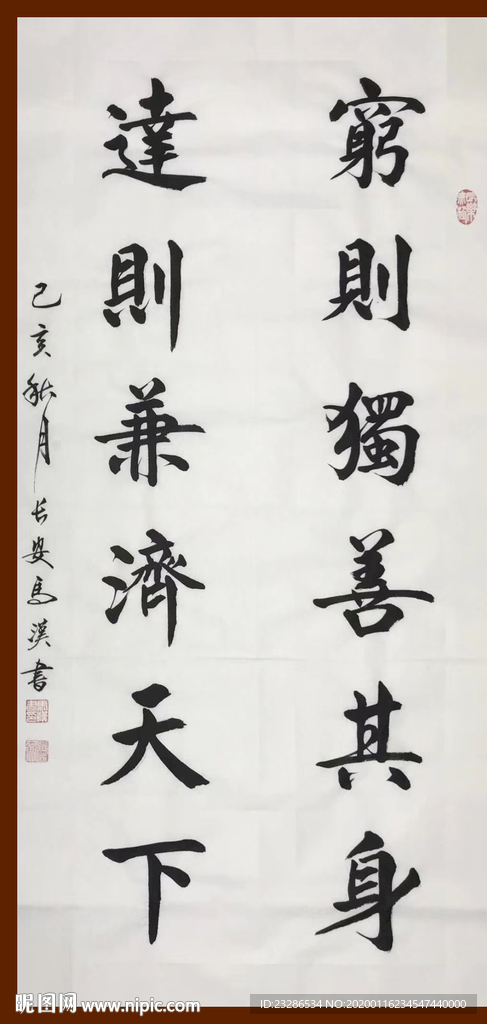 窮則獨善其身
達則兼濟天下
己亥秋月长安马漢书
昵图网 www.nipic.com
ID:23286534 NO:20200116234547440000